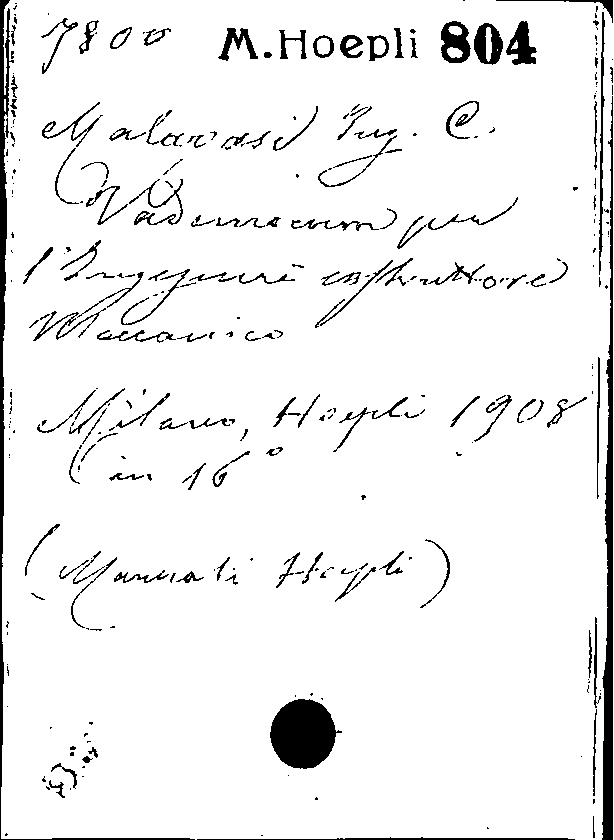 7800 M. Hoepli 804
Malavasi Ing. C.
Vademecum per
l'Ingegnere costruttore
Meccanico
Milano, Hoepli 1908
in 16°
(Manuali Hoepli)